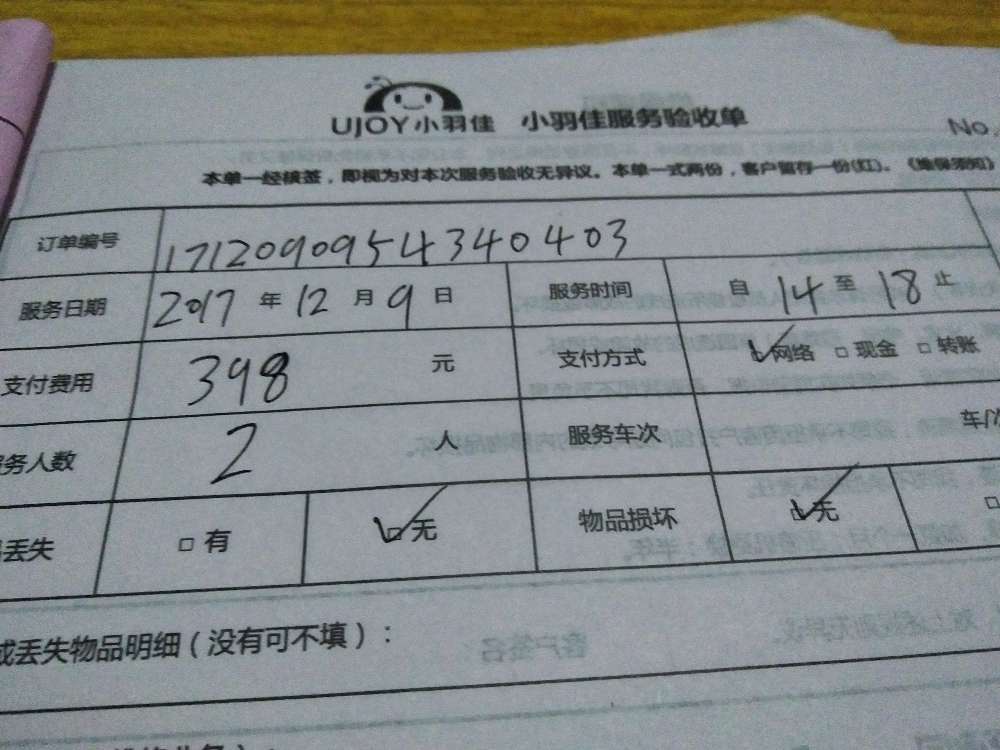 UJOY小羽佳 小羽佳服务验收单
No.
本单一经核签，即视为对本次服务验收无异议。本单一式两份，客户留存一份(红)。《维保须知》
订单编号 1712090954340403
服务日期 2017 年 12 月 9 日 服务时间 自 14 至 18 止
支付费用 398 元 支付方式 ☑网络 □ 现金 □ 转账
务人数 2 人 服务车次 车/次
丢失 □ 有 ☑无 物品损坏 ☑无 □
或丢失物品明细（没有可不填）：